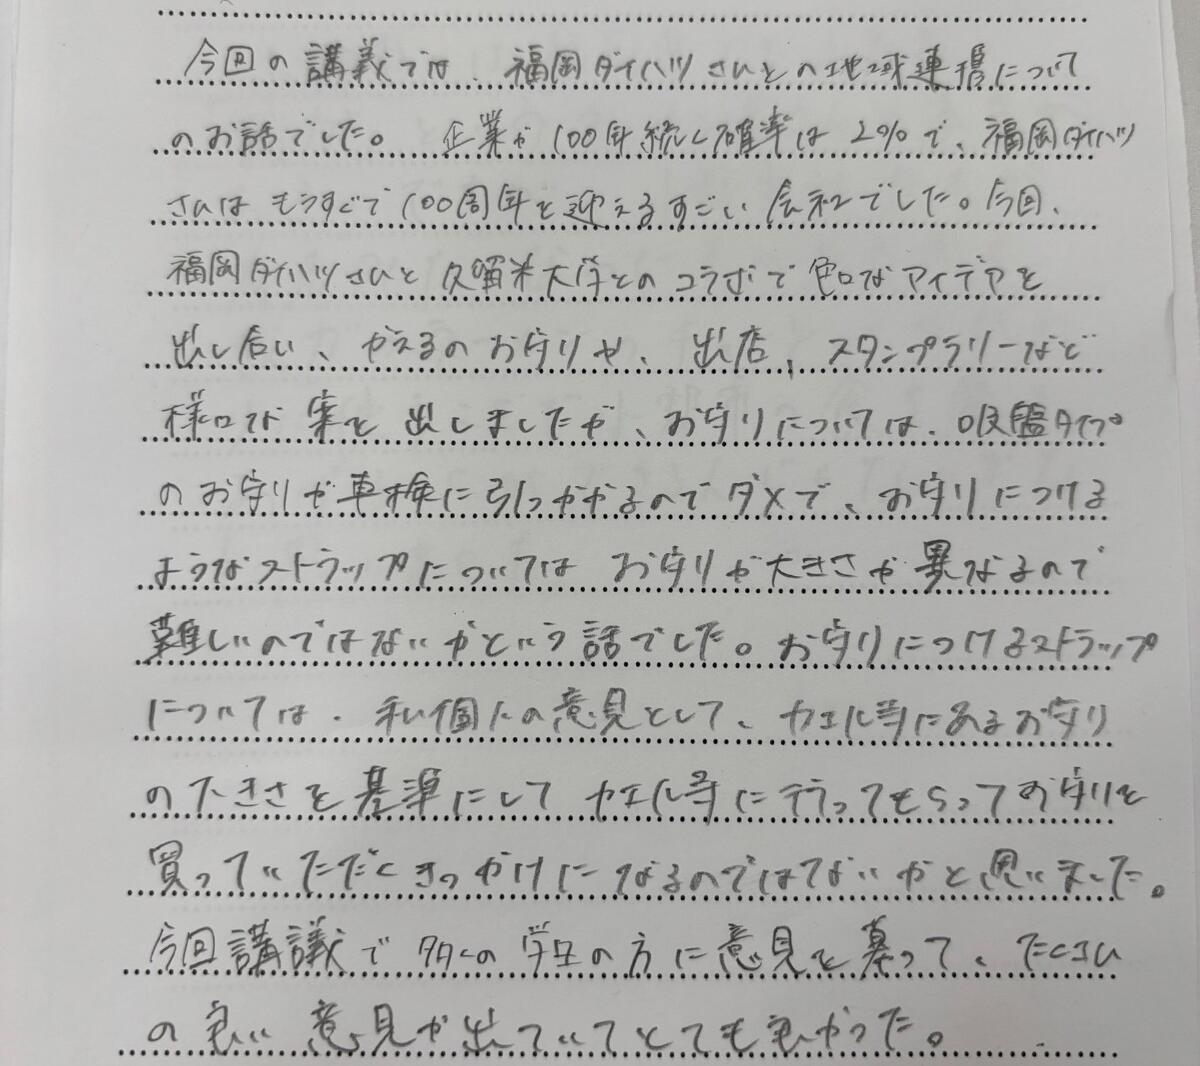 今回の講義では、福岡ダイハツさんとの地域連携について
のお話でした。企業が100年続く確率は2%で、福岡ダイハツ
さんはもうすぐで100周年を迎えるすごい会社でした。今回、
福岡ダイハツさんと久留米大学とのコラボで色々なアイデアを
出し合い、かえるのお守りや、出店、スタンプラリーなど
様々な案を出しましたが、お守りについては、吸盤タイプ
のお守りが車検に引っかかるのでダメで、お守りにつける
ようなストラップについてはお守りが大きさが異なるので
難しいのではないかという話でした。お守りにつけるストラップ
については、私個人の意見として、カエル寺にあるお守り
の大きさを基準にしてカエル寺に行ってもらってお守りを
買っていただくきっかけになるのではないかと思いました。
今回講議で多くの学生の方に意見を募って、たくさん
の良い意見が出ていてとても良かった。